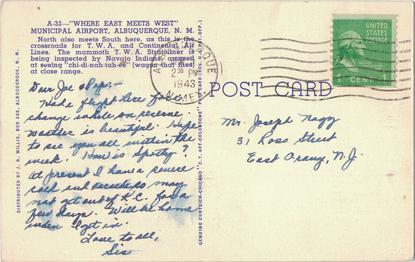 A-32—"WHERE EAST MEETS WEST"
MUNICIPAL AIRPORT, ALBUQUERQUE, N. M.
North also meets South here, as this is the
crossroads for T.W.A. and Continental Air
Lines. The mammoth T.W.A. Stratoliner is
being inspected by Navajo Indians, amazed
at seeing "chi-di-nah-tah-ee" (wagon that flies)
at close range.
Dear Joe & Pepe:-
Made flight here for
change inside on reverse.
Weather is beautiful. Hope
to see you all within the
week. How is Spotty?
At present I have a severe
cold and
not get out of K.C. for a
few days. Will be home
when I get in.
Love to all,
Sis
DISTRIBUTED BY J. R. WILLIS, BOX 665, ALBUQUERQUE, N. M.
GENUINE CURTEICH-CHICAGO "C.T. ART-COLORTONE" POST CARD (REG. U.S. PAT. OFF.)
ALBUQUERQUE
2 30 PM
1943
N.MEX.
UNITED STATES
POSTAGE
1 CENT 1
POST CARD
Mr. Joseph Nagy
31 Ross Street
East Orange, N.J.